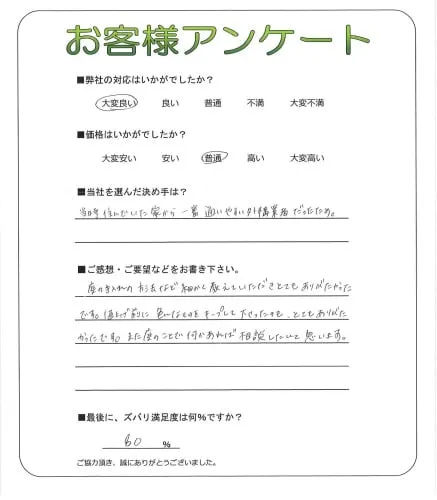 お客様アンケート
■弊社の対応はいかがでしたか？
大変良い 良い 普通 不満 大変不満
■価格はいかがでしたか？
大変安い 安い 普通 高い 大変高い
■当社を選んだ決め手は？
当時住んでいた家から一番通いやすい外構業者だったため。
■ご感想・ご要望などをお書き下さい。
庭の手入れの方法など細かく教えていただきとてもありがたかった
です。値上げ前に色んなものをキープして下さったのも、とてもありがた
かったです。また庭のことで何かあれば相談したいと思います。
■最後に、ズバリ満足度は何％ですか？
80 ％
ご協力頂き、誠にありがとうございました。